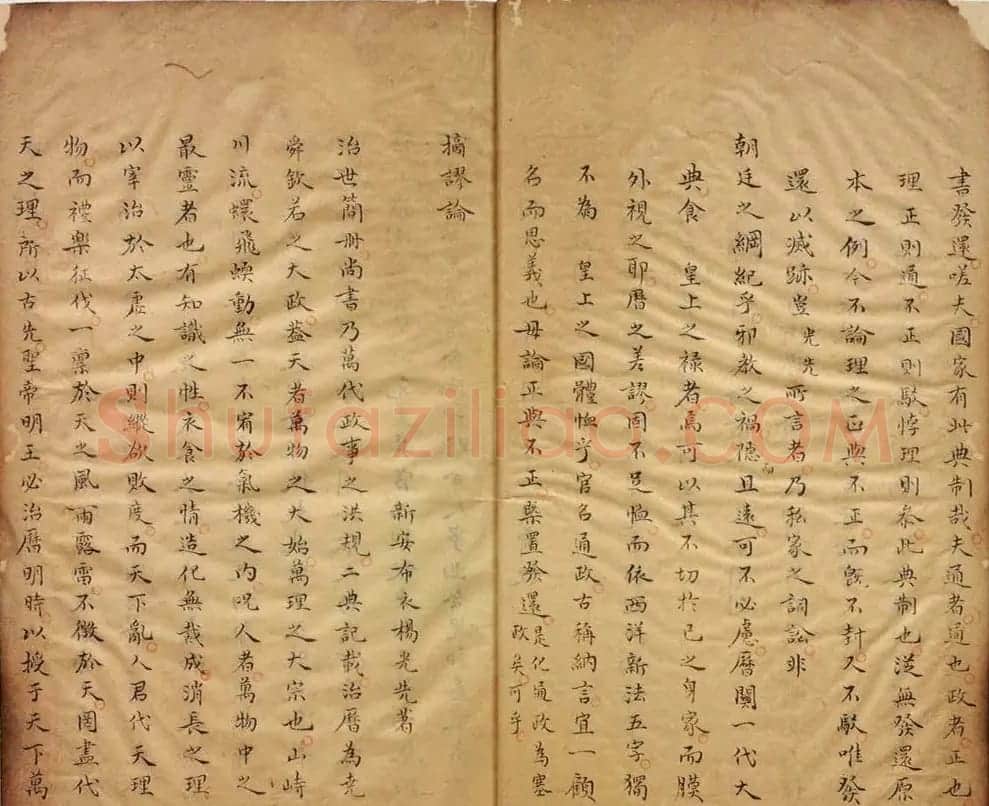 書發還嗟夫國家有此典制哉夫通者通也政者正也
理正則通不正則駁悖理則叅此典制也逆無發還原
本之例今不論理之正與不正而旣不封入不駁唯發
還以滅跡豈光先所言者乃私家之詞訟非
朝廷之綱紀乎邪教之禍隱且遠可不必慮曆關一代大
典食 皇上之祿者焉可以其不切於己之身家而膜
外視之耶曆之差謬固不足恤而依西洋新法五字獨
不為 皇上之國體恤乎官名通政古稱納言宜一顧
名而思義也毋論正與不正槩置發還是化通政為塞
政矣可乎
摘謬論
新安布衣楊光先著
治世簡冊尚書乃萬代政事之洪規二典記載治曆為堯
舜欽若之大政葢天者萬物之大始萬理之大宗也山峙
川流蠉飛蝡動無一不宥於氣機之內况人者萬物中之
最靈者也有知識之性衣食之情造化無裁成消長之理
以宰治於太虛之中則縱欲敗度而天下亂人君代天理
物而禮樂征伐一禀於天之風雨露雷不徵於天罔盡代
天之理所以古先聖帝明王必治曆明時以授于天下萬
Shuraziliao.COM